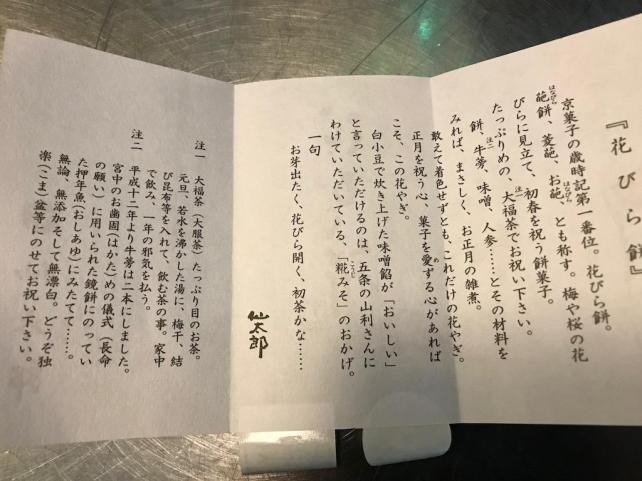 『花びら餅』
京菓子の歳時記第一番位。花びら餅。
葩餅、菱葩、お葩、とも称す。梅や桜の花
びらに見立て、初春を祝う餅菓子。
たっぷりめの、大福茶でお祝い下さい。
餅、牛蒡、味噌 人参……とその材料を
みれば、まさしく、お正月の雑煮。
敢えて着色せずとも、これだけの花やぎ。
正月を祝う心、菓子を愛ずる心があれば
こそ、この花やぎ。
白小豆で炊き上げた味噌餡が「おいしい」
と言っていただけるのは、五条の山利さんに
わけていただいている、「糀みそ」のおかげ。
一句
お芽出たく、花びら開く、初茶かな……
仙太郎
注一 大福茶(大服茶)たっぷり目のお茶。
元旦、若水を沸かした湯に、梅干、結
び昆布等を入れて、飲む茶の事。家中
で飲み、一年の邪気を払う。
注二 平成十二年より牛蒡は二本にしました。
宮中のお歯固(はかた)めの儀式(長命
の願い)に用いられた鏡餅にのってい
た押年魚(おしあゆ)にみたてて……。
無論、無添加そして無漂白。どうぞ独
楽(こま)盆等にのせてお祝い下さい。